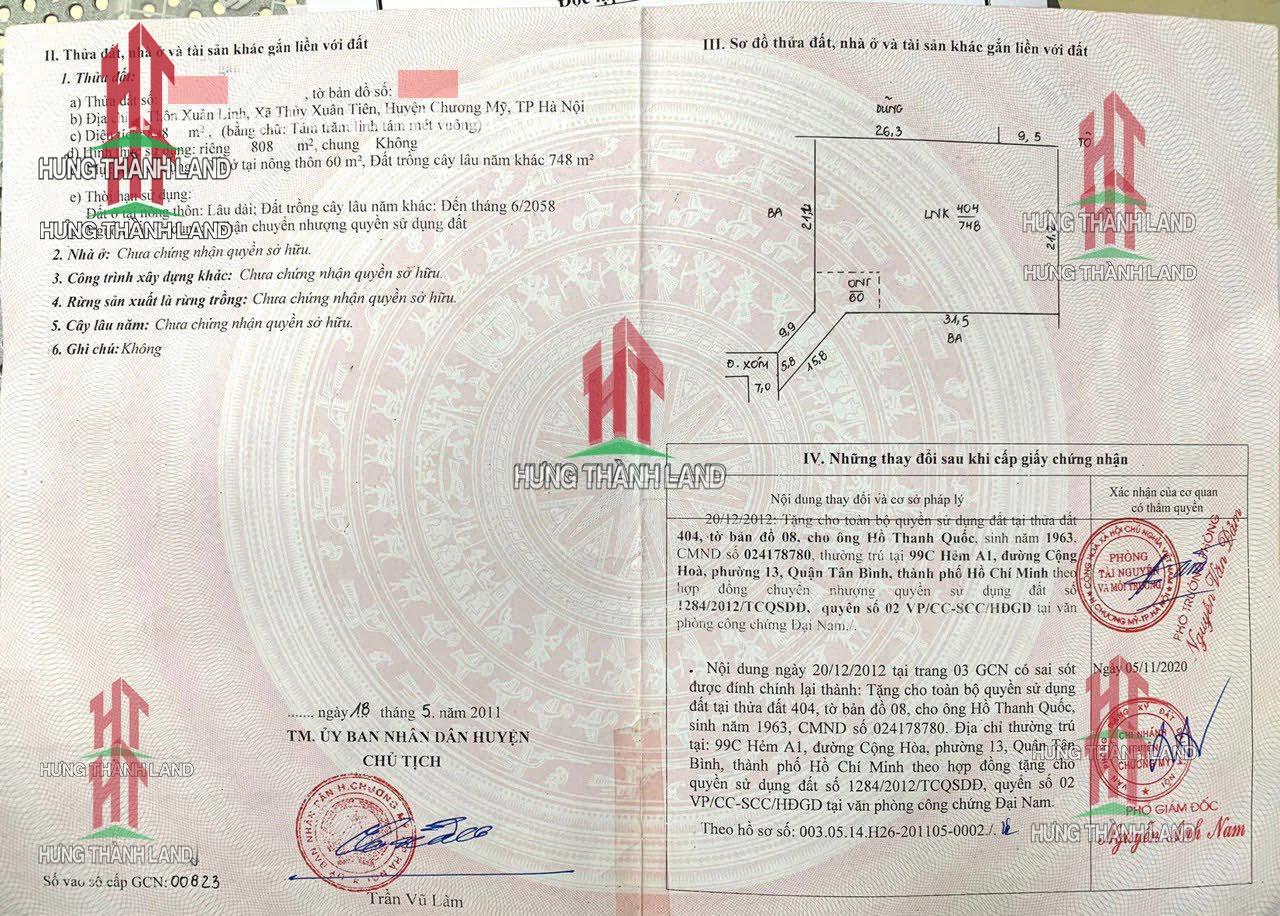 II. Thửa đất, nhà ở và tài sản khác gắn liền với đất
1. Thửa đất:
a) Thửa đất số: , tờ bản đồ số:
b) Địa chỉ: Thôn Xuân Linh, Xã Thủy Xuân Tiên, Huyện Chương Mỹ, TP Hà Nội
c) Diện 8 m², (bằng chữ: Tám trăm linh tám mét vuông)
d) Hình thức sử dụng: riêng 808 m², chung Không
ở tại nông thôn 60 m², Đất trồng cây lâu năm khác 748 m²
e) Thời hạn sử dụng:
Đất ở tại nông thôn: Lâu dài; Đất trồng cây lâu năm khác: Đến tháng 6/2058
nhận chuyển nhượng quyền sử dụng đất
2. Nhà ở: Chưa chứng nhận quyền sở hữu.
3. Công trình xây dựng khác: Chưa chứng nhận quyền sở hữu.
4. Rừng sản xuất là rừng trồng: Chưa chứng nhận quyền sở hữu.
5. Cây lâu năm: Chưa chứng nhận quyền sở hữu.
6. Ghi chú: Không
HƯNG THÀNH LAND
HƯNG THÀNH LAND
HT
HƯNG THÀNH LAND
......, ngày 18 tháng 5. năm 2011
TM. ỦY BAN NHÂN DÂN HUYỆN
CHỦ TỊCH
Trần Vũ Lâm
HƯNG THÀNH LAND
HƯNG THÀNH LAND
Số vào sổ cấp GCN: 00823
III. Sơ đồ thửa đất, nhà ở và tài sản khác gắn liền với đất
DŨNG
26,3
9,5
TÔ
BA
21,2
LNK 404
748
21,2
ONT
60
9,9
31,5
BA
Đ. XÓM
5,8
15,8
7,0
HƯNG THÀNH LAND
HƯNG THÀNH LAND
IV. Những thay đổi sau khi cấp giấy chứng nhận
Nội dung thay đổi và cơ sở pháp lý
Xác nhận của cơ quan
có thẩm quyền
20/12/2012: Tặng cho toàn bộ quyền sử dụng đất tại thửa đất
404, tờ bản đồ 08, cho ông Hồ Thanh Quốc, sinh năm 1963,
CMND số 024178780, thường trú tại 99C Hẻm A1, đường Cộng
Hoà, phường 13, Quận Tân Bình, thành phố Hồ Chí Minh theo
hợp đồng chuyển nhượng quyền sử dụng đất số
1284/2012/TCQSDĐ, quyển số 02 VP/CC-SCC/HĐGD tại văn
phòng công chứng Đại Nam./.
PHÒNG
TÀI NGUYÊN
VÀ MÔI TRƯỜNG
H.CHƯƠNG MỸ-TP.HÀ NỘI
PHÓ TRƯỞNG PHÒNG
Nguyễn Văn Dân
Nội dung ngày 20/12/2012 tại trang 03 GCN có sai sót
được đính chính lại thành: Tặng cho toàn bộ quyền sử dụng
đất tại thửa đất 404, tờ bản đồ 08, cho ông Hồ Thanh Quốc,
sinh năm 1963, CMND số 024178780. Địa chỉ thường trú
tại: 99C Hẻm A1, đường Cộng Hòa, phường 13, Quận Tân
Bình, thành phố Hồ Chí Minh theo hợp đồng tặng cho
quyền sử dụng đất số 1284/2012/TCQSDĐ, quyển số 02
VP/CC-SCC/HĐGD tại văn phòng công chứng Đại Nam.
Theo hồ sơ số: 003.05.14.H26-201105-0002./.
Ngày 05/11/2020
CHI NHÁNH
HUYỆN
CHƯƠNG MỸ
PHÓ GIÁM ĐỐC
HƯNG THÀNH LAND
HƯNG THÀNH LAND